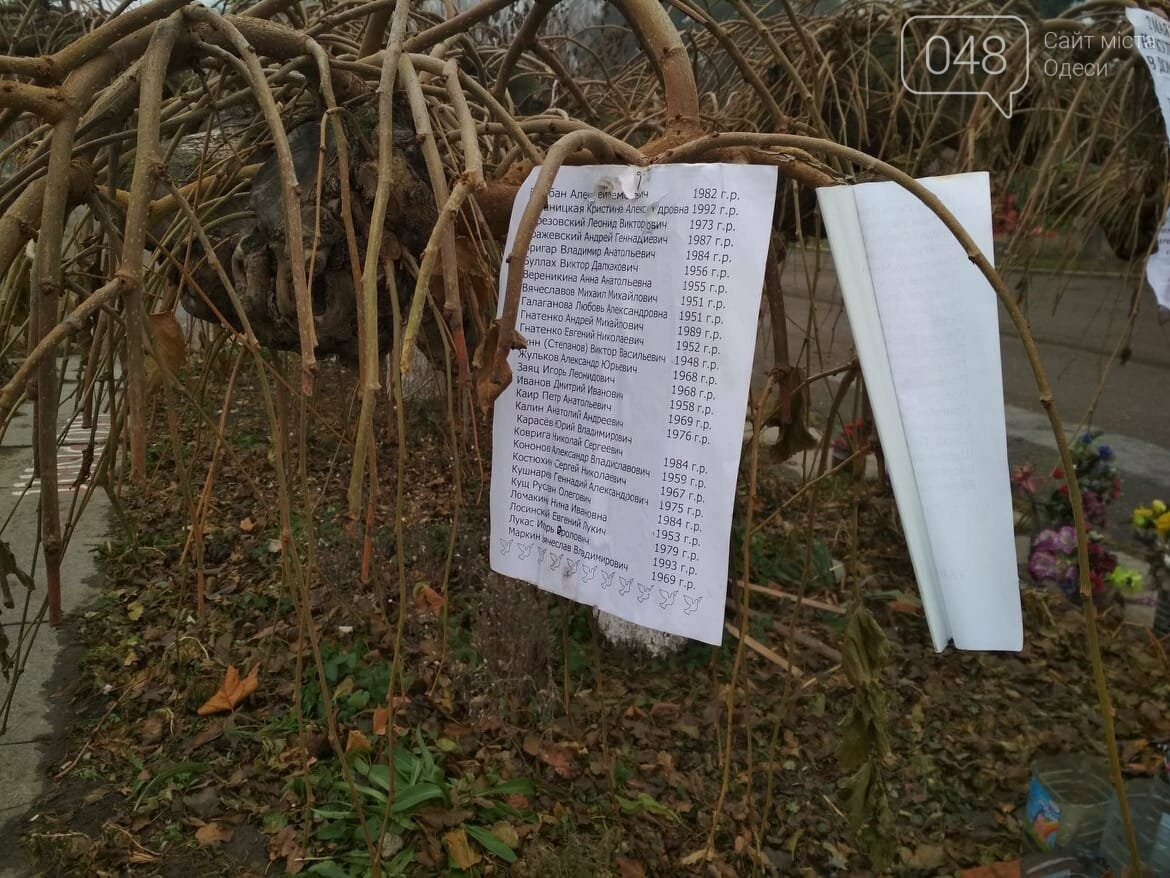 048
Сайт міста
Одеси
бан 1982 г.р.
аницкая Кристина 1992 г.р.
резовский Леонид Викторович 1973 г.р.
ражевский Андрей Геннадиевич 1987 г.р.
ригар Владимир Анатольевич 1984 г.р.
уллах Виктор Далхакович 1956 г.р.
Вереникина Анна Анатольевна 1955 г.р.
Вячеславов Михаил Михайлович 1951 г.р.
Галаганова Любовь Александровна 1951 г.р.
Гнатенко Андрей Михайлович 1989 г.р.
Гнатенко Евгений Николаевич 1952 г.р.
нн (Степанов) Виктор Васильевич 1948 г.р.
Жульков Александр Юрьевич 1968 г.р.
Заяц Игорь Леонидович 1968 г.р.
Иванов Дмитрий Иванович 1958 г.р.
Каир Петр Анатольевич 1969 г.р.
Калин Анатолий Андреевич 1976 г.р.
Карасёв Юрий Владимирович
Коврига Николай Сергеевич 1984 г.р.
Кононов Александр Владиславович 1959 г.р.
Костюхин Сергей Николаевич 1967 г.р.
Кушнарев Геннадий Александрович 1975 г.р.
Кущ Руслан Олегович 1984 г.р.
Ломакин Нина Ивановна 1953 г.р.
Лосински Евгений Лукич 1979 г.р.
Лукас Игорь ролович 1993 г.р.
Маркин ячеслав Владимирович 1969 г.р.